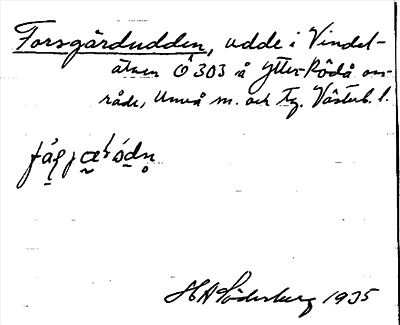 Forsgårdudden, udde i Vindel-
älven Ö 303 å Ytter-Rödå om-
råde, Umeå m. och tg. Västerb. l.
HA Söderberg 1935